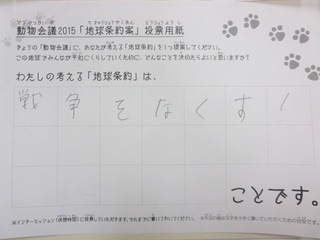 動物会議2015「地球条約案」投票用紙
きょうの「動物会議」に、あなたが考える「地球条約」を1つ提案してください。
この地球でみんなが平和にくらしていくために、どんなことを決めたらよいと思いますか?
わたしの考える「地球条約」は、
戦争をなくす!
ことです。
※インターミッション(休憩時間)に投票していただきます。それまでに書いておいてください。